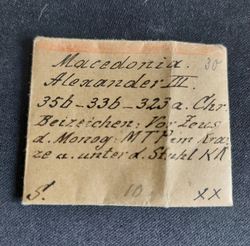 Macedonia. 30
Alexander III.
356-336-323 a. Chr.
Beizeichen: Vor Zeus
d. Monog: MTP im Kran-
ze u. unter d. Stuhl
S. 10 XX